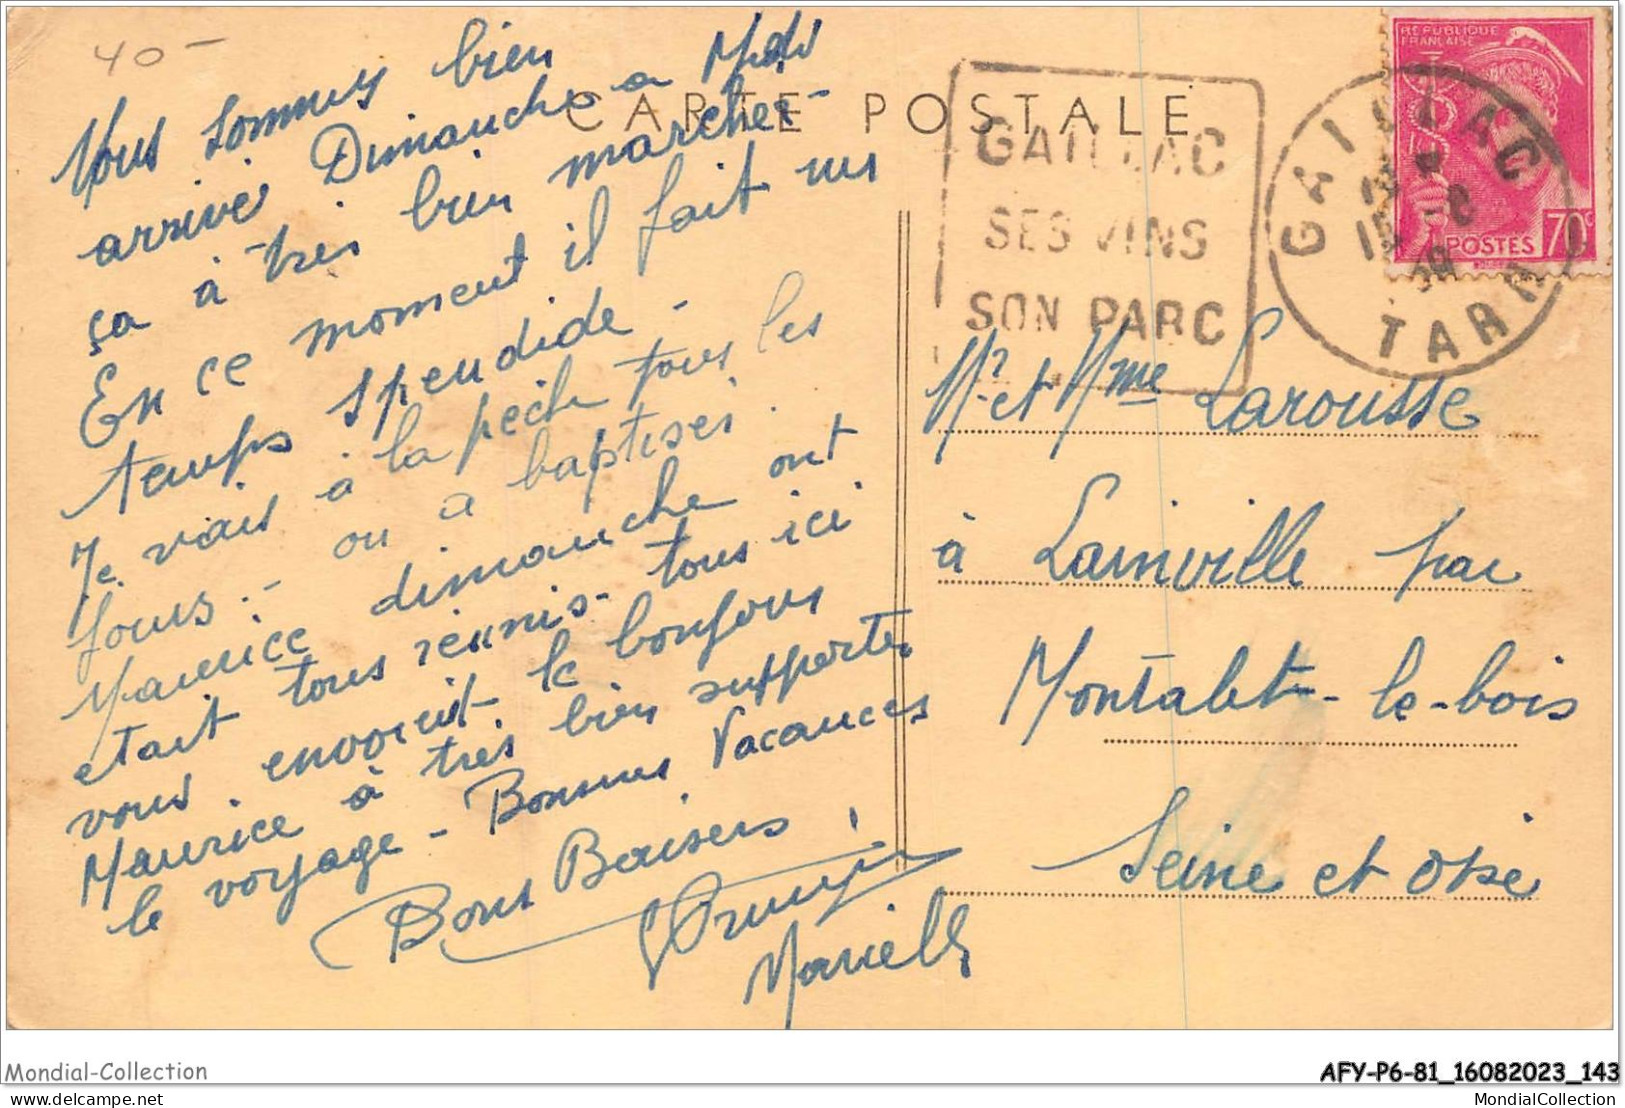 40-
CARTE POSTALE
Nous sommes bien
arrivé Dimanche a Midi
ça à très bien marcher-
En ce moment il fait un
temps spendide-
Je vais à la pêche tous les
jours.- ou a baptiser.
Maurice dimanche ont
etait tous reunis- tous ici
vous envoient le bonjour
Maurice à très bien supporter
le voyage- Bonnes Vacances
Bons Baisers!
GAILLAC
SES VINS
SON PARC
GAILLAC
TARN
REPUBLIQUE
FRANÇAISE
POSTES 70c
Mr et Mme Larousse
à Lainville par
Montalet-le-bois
Seine et Oise
Mondial-Collection
AFY-P6-81_16082023_143
delcampe.net
MondialCollection